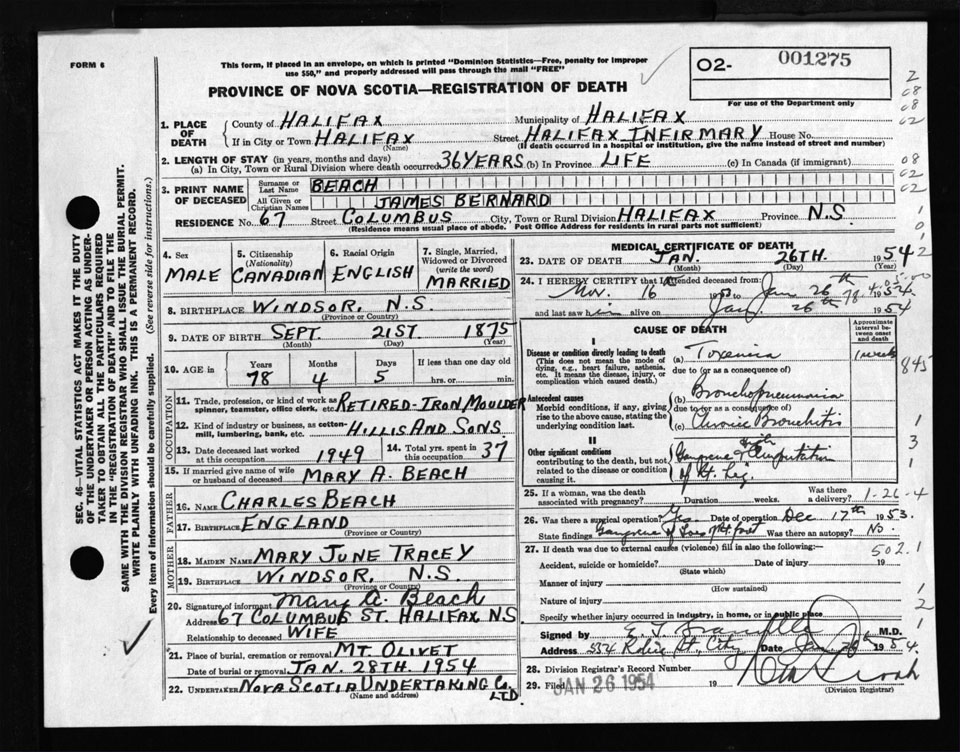 FORM 6
This form, if placed in an envelope, on which is printed "Dominion Statistics—Free, penalty for improper
use $50," and properly addressed will pass through the mail "FREE"
O2- 001275
For use of the Department only
PROVINCE OF NOVA SCOTIA—REGISTRATION OF DEATH
1. PLACE OF DEATH
County of HALIFAX Municipality of HALIFAX
If in City or Town HALIFAX Street HALIFAX INFIRMARY House No.
(Name) (If death occurred in a hospital or institution, give the name instead of street and number)
2. LENGTH OF STAY (in years, months and days)
(a) In City, Town or Rural Division where death occurred 36 YEARS (b) In Province LIFE (c) In Canada (if immigrant)
3. PRINT NAME OF DECEASED
Surname or Last Name BEACH
All Given or Christian Names JAMES BERNARD
RESIDENCE No. 67 Street COLUMBUS City, Town or Rural Division HALIFAX Province N.S
(Residence means usual place of abode. Post Office Address for residents in rural parts not sufficient)
4. Sex MALE
5. Citizenship (Nationality) CANADIAN
6. Racial Origin ENGLISH
7. Single, Married, Widowed or Divorced (write the word) MARRIED
8. BIRTHPLACE WINDSOR, N.S.
(Province or Country)
9. DATE OF BIRTH SEPT. 21ST 1875
(Month) (Day) (Year)
10. AGE in Years Months Days If less than one day old
78 4 5 hrs. or min.
OCCUPATION
11. Trade, profession, or kind of work as
spinner, teamster, office clerk, etc. RETIRED-IRON MOULDER
12. Kind of industry or business, as cotton-
mill, lumbering, bank, etc. HILLIS AND SONS
13. Date deceased last worked at this occupation 1949
14. Total yrs. spent in this occupation 37
15. If married give name of wife
or husband of deceased MARY A. BEACH
FATHER
16. NAME CHARLES BEACH
17. BIRTHPLACE ENGLAND
(Province or Country)
MOTHER
18. MAIDEN NAME MARY JUNE TRACEY
19. BIRTHPLACE WINDSOR, N.S.
(Province or Country)
20. Signature of informant Mary A. Beach
Address 67 COLUMBUS ST. HALIFAX N.S
Relationship to deceased WIFE
21. Place of burial, cremation or removal MT. OLIVET
Date of burial or removal JAN. 28TH. 1954
22. UNDERTAKER NOVA SCOTIA UNDERTAKING CO. LTD
(Name and address)
MEDICAL CERTIFICATE OF DEATH
23. DATE OF DEATH JAN. 26TH. 1954
(Month) (Day) (Year)
24. I HEREBY CERTIFY that I attended deceased from:
Nov. 16 19 Jan 26th 1954
and last saw him alive on Jan 26th 1954
CAUSE OF DEATH
Approximate interval between onset and death
I
Disease or condition directly leading to death
(This does not mean the mode of dying, e.g., heart failure, asthenia, etc. It means the disease, injury, or complication which caused death.)
(a) Toxemia 1 week
due to (or as a consequence of)
Antecedent causes
Morbid conditions, if any, giving rise to the above cause, stating the underlying condition last.
(b) Bronchopneumonia
due to (or as a consequence of)
(c) Chronic Bronchitis
II
Other significant conditions
contributing to the death, but not related to the disease or condition causing it.
Gangrene & Amputation
of Rt. Leg.
845
25. If a woman, was the death associated with pregnancy? Duration weeks. Was there a delivery?
1-26-4
26. Was there a surgical operation? Yes Date of operation Dec 17th 1953.
State findings Gangrene of Toes of Rt. foot Was there an autopsy? No.
27. If death was due to external causes (violence) fill in also the following:—
502.1
Accident, suicide or homicide? Date of injury 19
(State which)
Manner of injury
(How sustained)
Nature of injury
Specify whether injury occurred in industry, in home, or in public place
Signed by M.D.
Address City Date 1954.
28. Division Registrar's Record Number
29. Filed JAN 26 1954 19
(Division Registrar)
SEC. 46—VITAL STATISTICS ACT MAKES IT THE DUTY
OF THE UNDERTAKER OR PERSON ACTING AS UNDER-
TAKER TO OBTAIN ALL THE PARTICULARS REQUIRED
IN THE "REGISTRATION OF DEATH" AND TO FILE THE
SAME WITH THE DIVISION REGISTRAR WHO SHALL ISSUE THE BURIAL PERMIT.
WRITE PLAINLY WITH UNFADING INK. THIS IS A PERMANENT RECORD.
Every item of information should be carefully supplied. (See reverse side for instructions.)